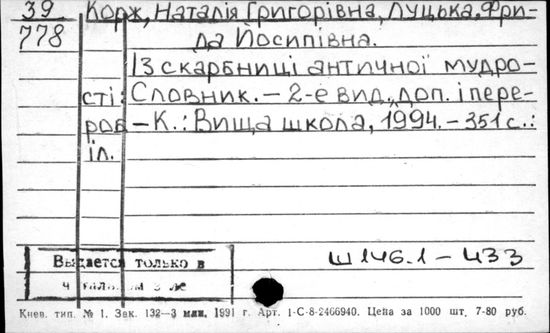 39
778
Корж, Наталія Григорівна, Луцька, Фри-
да Йосипівна.
Із скарбниці античної мудро-
сті: Словник. – 2-е вид., доп. і пере-
роб – К.: Вища школа, 1994. – 351 с.:
іл.
Ш146.1 – 433
Выдается только в
Киев. тип. № 1. Зак. 132—3 млн. 1991 г. Арт. 1-С-8-2466940. Цена за 1000 шт. 7-80 руб.